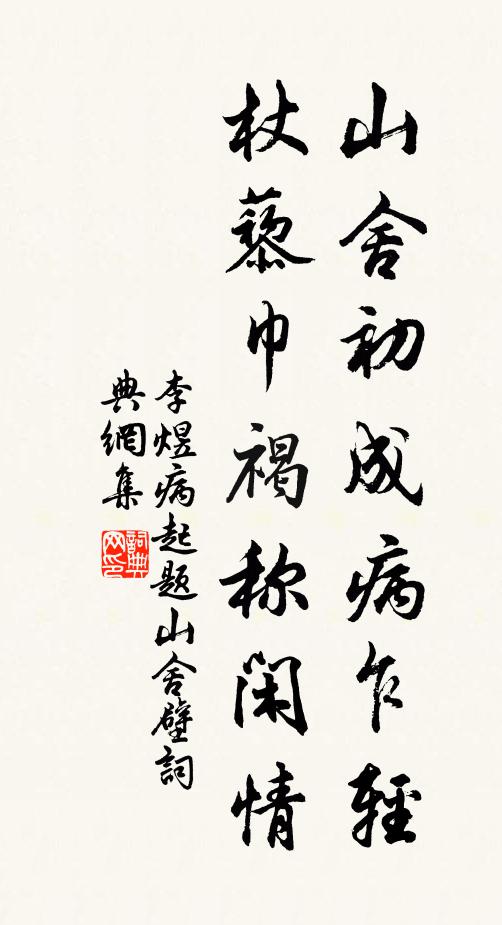 山舍初成病乍輕
杖藜巾褐称閑情
李煜病起題山舍壁詞
典網集
詞典网印